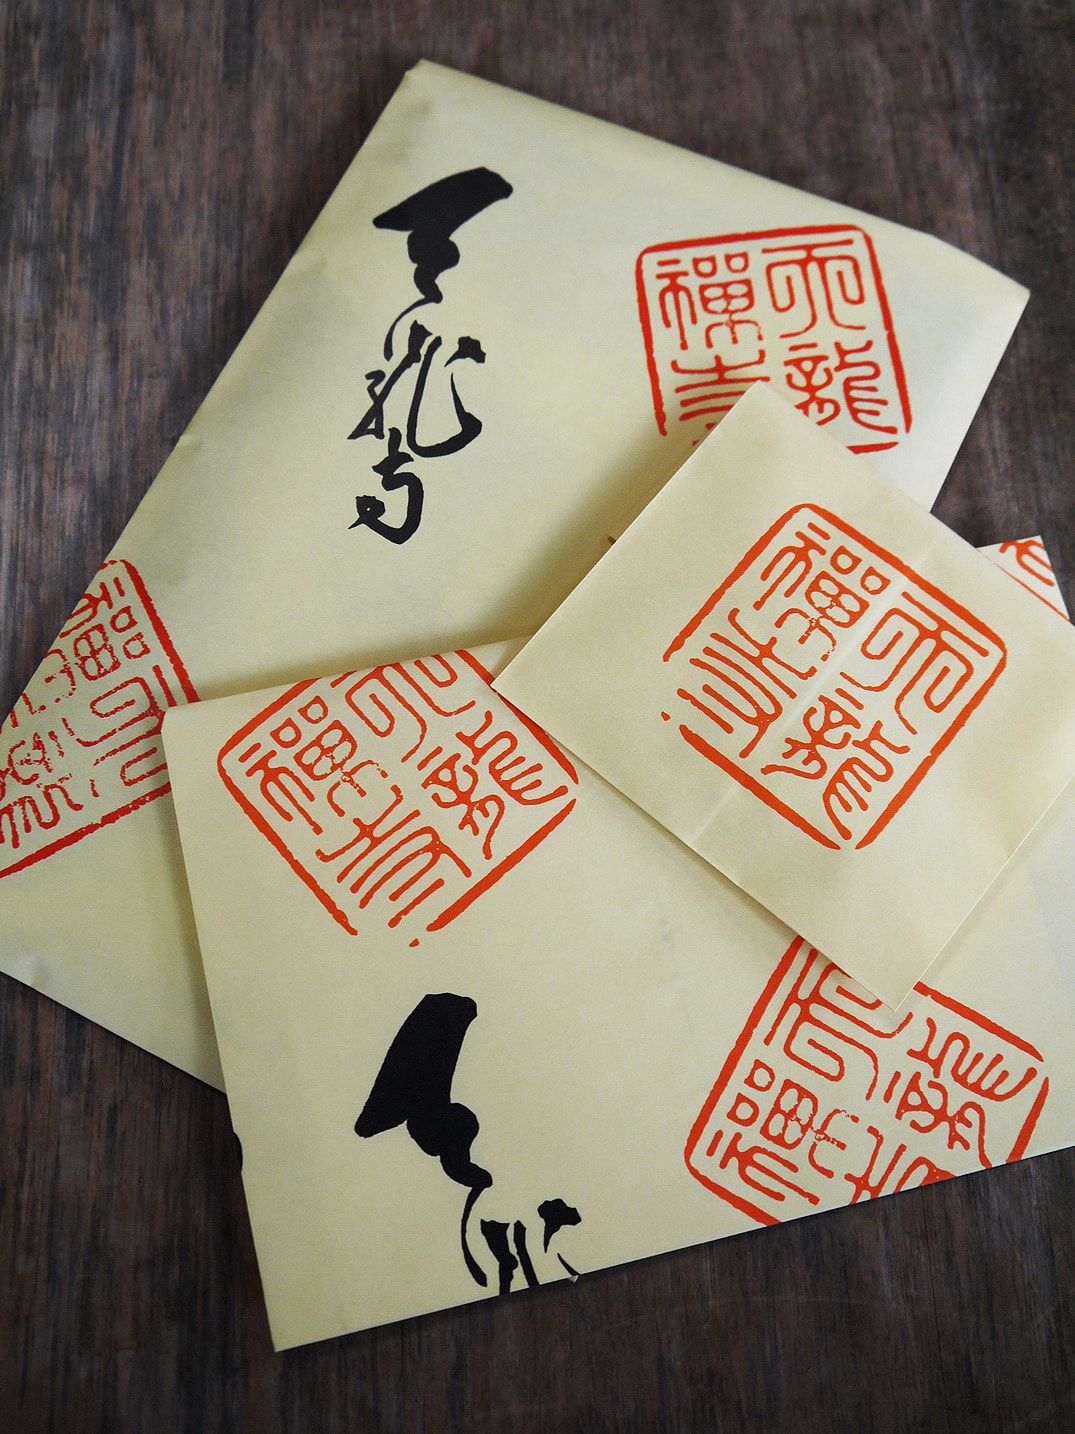 天龍寺
天龍
禪寺
天龍
禪寺
天龍
禪寺
天龍
禪寺
天